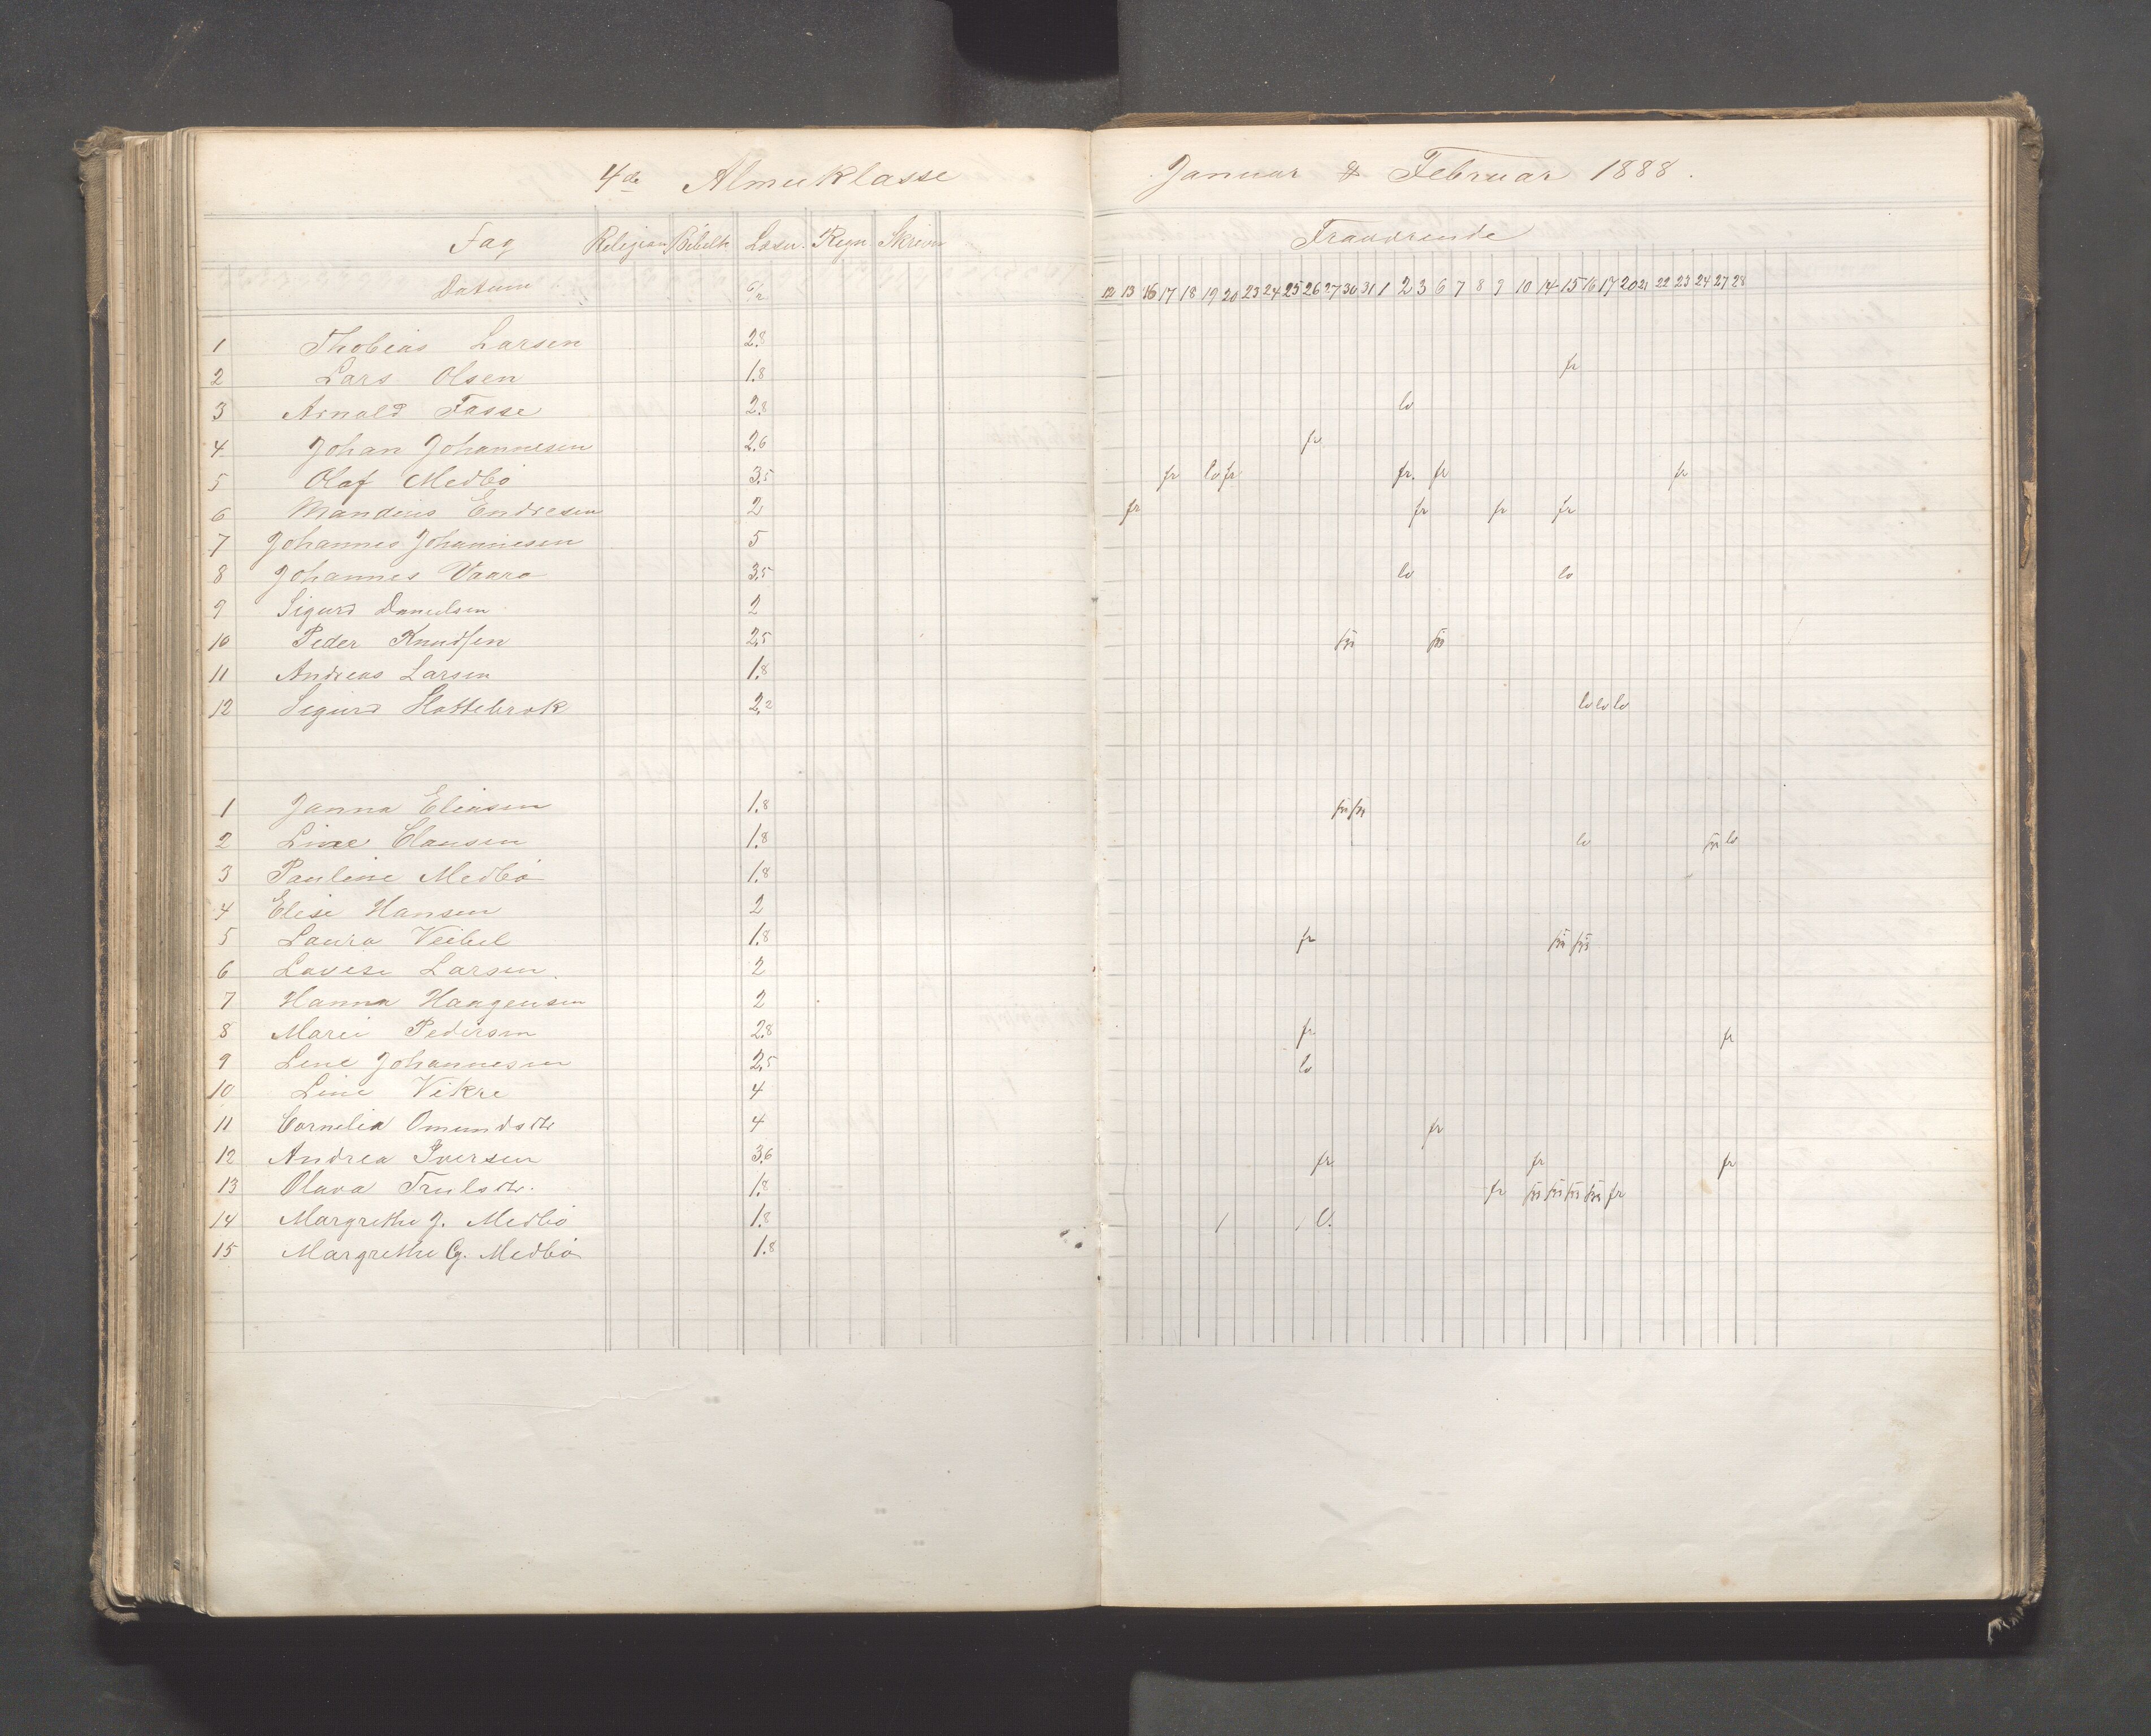 4de Almueklasse
Januar & Februar 1888.
Fag Religion Bibelh Læsn. Regn Skrivn
Fraværende
Datum 6/2
12 13 16 17 18 19 20 23 24 25 26 27 30 31 1 2 3 6 7 8 9 10 14 15 16 17 20 21 22 23 24 27 28
1 Thobias Larsen 2.8
2 Lars Olsen 1.8 fr
3 Arnold Fasse 2.8 lo
4 Johan Johannesen 2.6 fr
5 Olaf Medbø 3.5 fr lo fr fr. fr fr
6 Mandius Endresen 2 fr fr fr fr
7 Johannes Johannesen 5
8 Johannes Vaara 3.5 lo lo
9 Sigurd Danielsen 2
10 Peder Knudsen 2.5
11 Andreas Larsen 1.8
12 Sigurd Slottebrok 2.2 lo lo lo
1 Janna Eliasen 1.8
2 Line Clausen 1.8 lo lo
3 Pauline Medbø 1.8
4 Elise Hansen 2
5 Laura Veibel 1.8 fr
6 Lavese Larsen. 2
7 Hanna Haagensen 2
8 Marie Pedersen 2.8 fr fr
9 Lene Johannesen 2.5 lo
10 Line Vikre 4
11 Cornelia Omundsdtr 4 fr
12 Andrea Iversen 3.6 fr. fr fr
13 Olava Trulsdtr. 1.8 fr fr
14 Margrethe J. Medbø 1.8
15 Margrethe G. Medbø 1.8